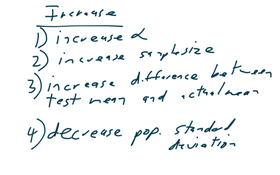 Increase
1) increase α
2) increase samplesize
3) increase difference between
test mean and actual mean
4) decrease pop. standard
deviation